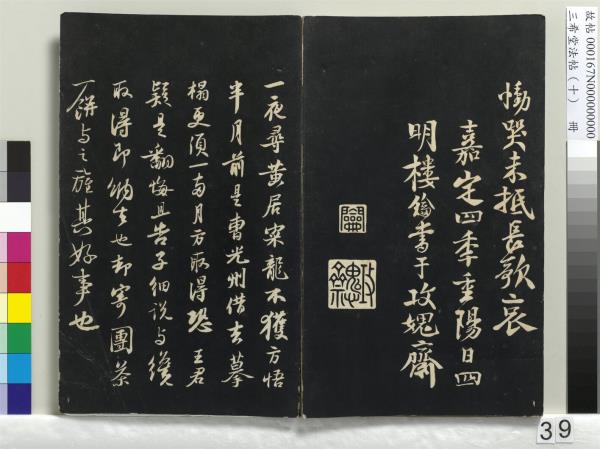 慟哭未抵長歌哀
嘉定四季重陽日四
明樓鑰書于攻媿齋
攻媿
一夜尋黃居寀龍不獲方悟
半月前是曹光州借去摹
榻更須一兩月方取得恐王君
疑是翻悔且告子細說与纔
取得即納去也却寄團茶
一餅与之旌其好事也
故帖 000167N000000000
三希堂法帖（十） 冊
39